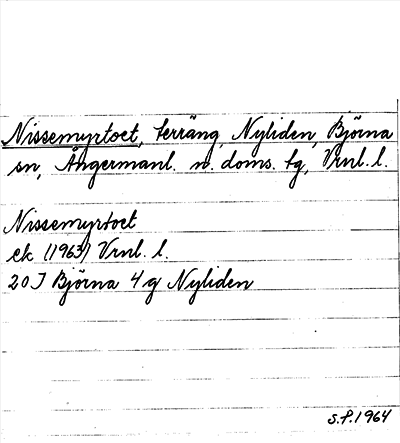 Nissemyrtoet, terräng, Nyliden, Björna
sn, Ångermanl. n. doms. tg, Vrnl. l.
Nissemyrtoet
ek (1963) Vrnl. l.
20 J Björna 4 g Nyliden
S.P. 1964